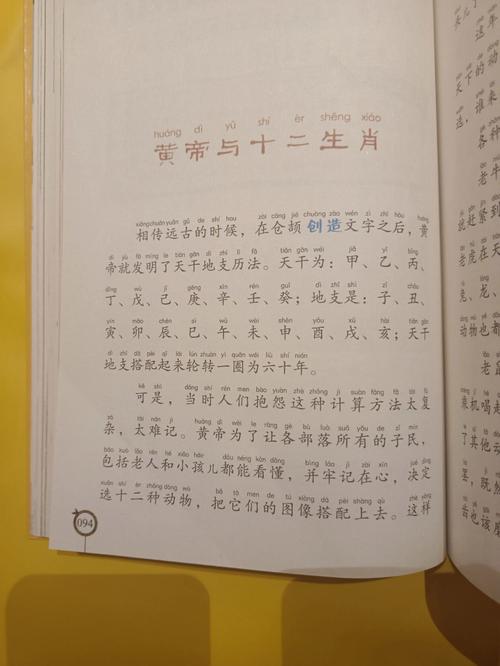 huáng dì yǔ shí èr shēng xiào
黄帝与十二生肖
xiāng chuán yuǎn gǔ de shí hou zài cāng jié chuàng zào wén zì zhī hòu huáng
相传远古的时候，在仓颉创造文字之后，黄
dì jiù fā míng le tiān gān dì zhī lì fǎ tiān gān wéi jiǎ yǐ bǐng
帝就发明了天干地支历法。天干为：甲、乙、丙、
dīng wù jǐ gēng xīn rén guǐ dì zhī shì zǐ chǒu
丁、戊、己、庚、辛、壬、癸；地支是：子、丑、
yín mǎo chén sì wǔ wèi shēn yǒu xū hài tiān gān
寅、卯、辰、巳、午、未、申、酉、戌、亥；天干
dì zhī dā pèi qǐ lái lún zhuàn yì quān wéi liù shí nián
地支搭配起来轮转一圈为六十年。
kě shì dāng shí rén men bào yuàn zhè zhǒng jì suàn fāng fǎ tài fù
可是，当时人们抱怨这种计算方法太复
zá tài nán jì huáng dì wèi le ràng gè bù luò suǒ yǒu de zǐ mín
杂，太难记。黄帝为了让各部落所有的子民，
bāo kuò lǎo rén hé xiǎo hái r dōu néng kàn dǒng bìng láo jì zài xīn jué dìng
包括老人和小孩儿都能看懂，并牢记在心，决定
xuǎn shí èr zhǒng dòng wù bǎ tā men de tú xiàng dā pèi shàng qù zhè yàng
选十二种动物，把它们的图像搭配上去。这样
094
这年
天下的动
选，谁来
各种
老牛
就赶紧到
老虎在天
兔、龙、
动物也都
老鼠
乘机喝
了其他
罢，既然
齿也该